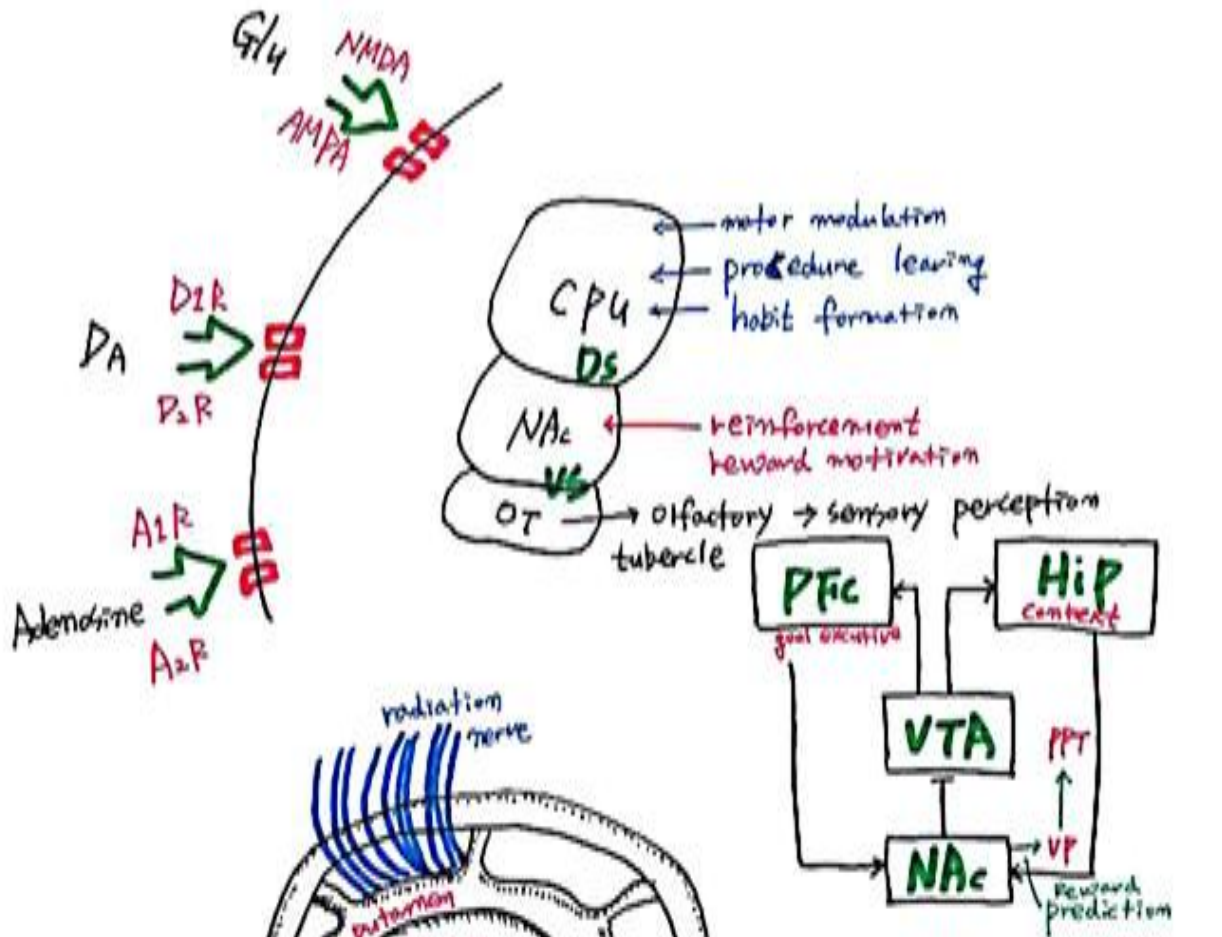 Glu
NMDA
AMPA
DA
D1R
D2R
Adenosine
A1R
A2R
CPu
DS
motor modulation
procedure learing
habit formation
NAc
VS
reinforcement
reward motivation
OT → olfactory → sensory perception
tubercle
PFC
goal excutive
HiP
context
VTA
PPT
NAc
VP
reward
prediction
radiation
nerve
putamen